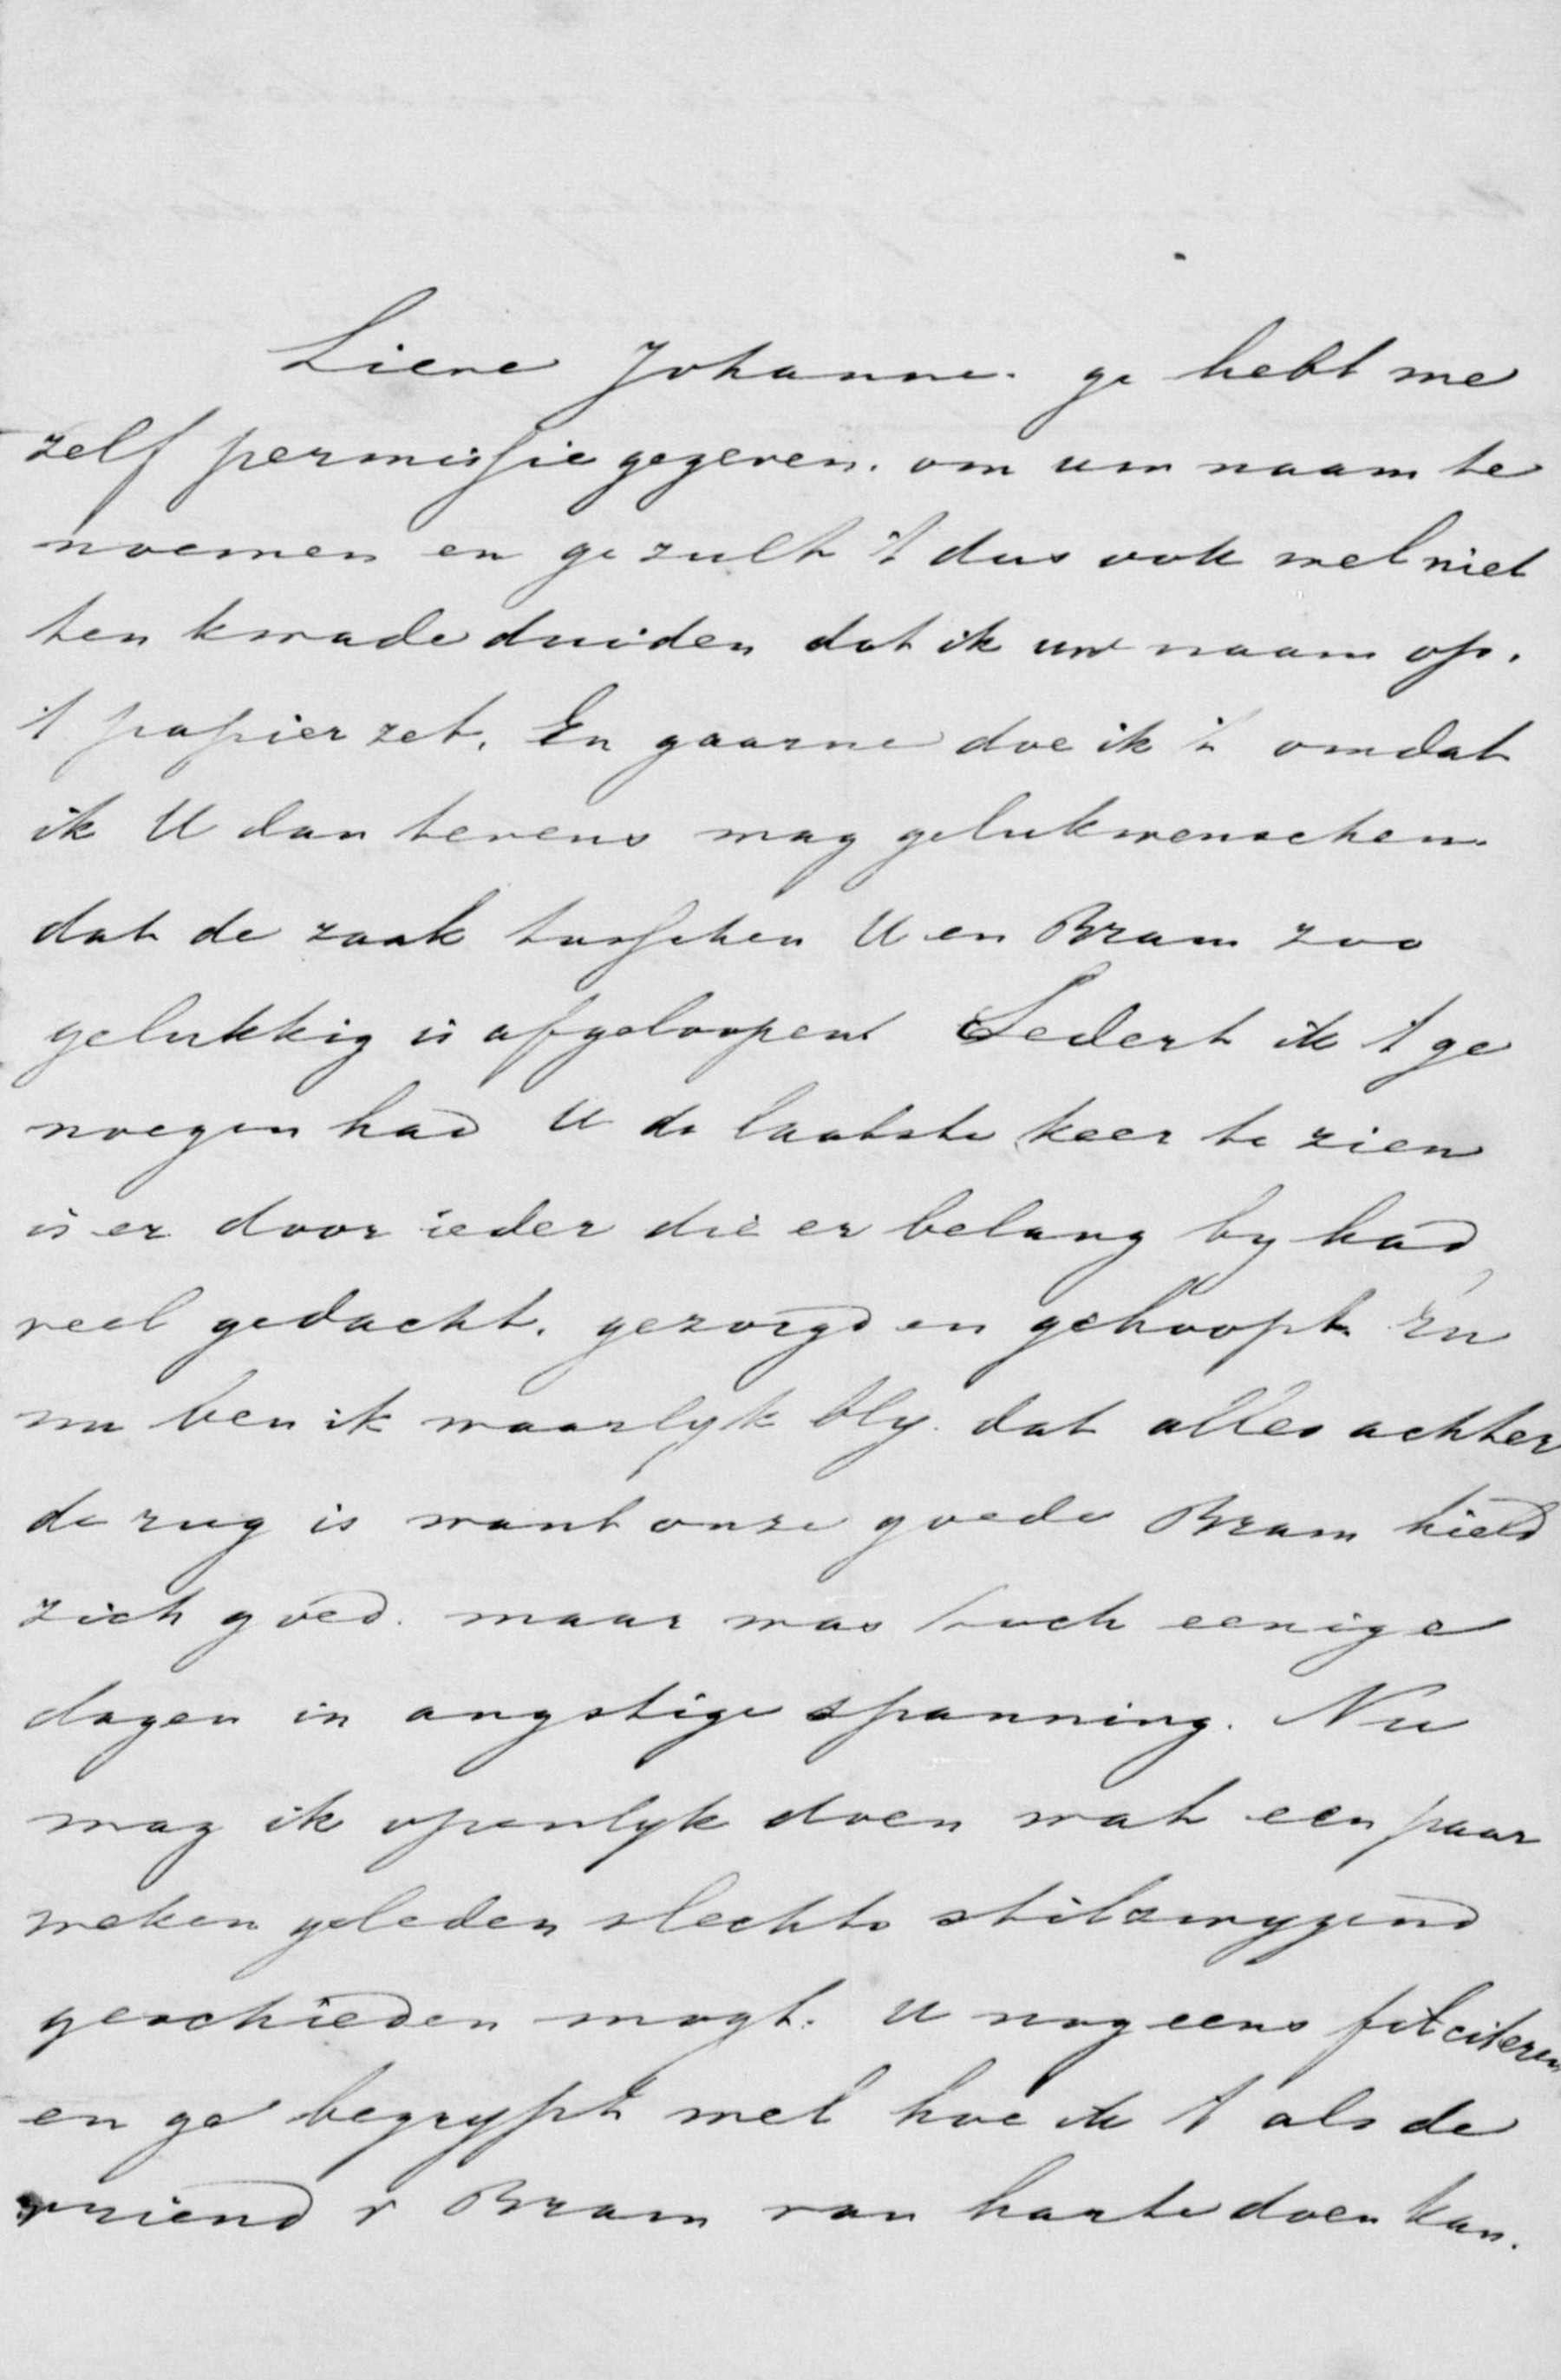 Lieve Johanne. ge hebt me
zelf permissie gegeven. om uw naam te
noemen en ge zult 't dus ook wel niet
ten kwade duiden dat ik uw naam op.
't papier zet. En gaarne doe ik 't omdat
ik U dan tevens mag gelukwenschen.
dat de zaak tusschen U en Bram zoo
gelukkig is afgeloopen Sedert ik 't ge
noegen had U de laatste keer te zien
is er door ieder die er belang by had
veel gedacht. gezorgd en gehoopt En
nu ben ik waarlyk bly. dat alles achter
de rug is want onze goede Bram hield
zich goed. maar was toch eenige
dagen in angstige spanning. Nu
mag ik openlyk doen wat een paar
weken geleden slechts stilzwygend
geschieden mogt. U nog eens feliciteren
en ge begrypt wel hoe ik 't als de
vriend v Bram van harte doen kan.